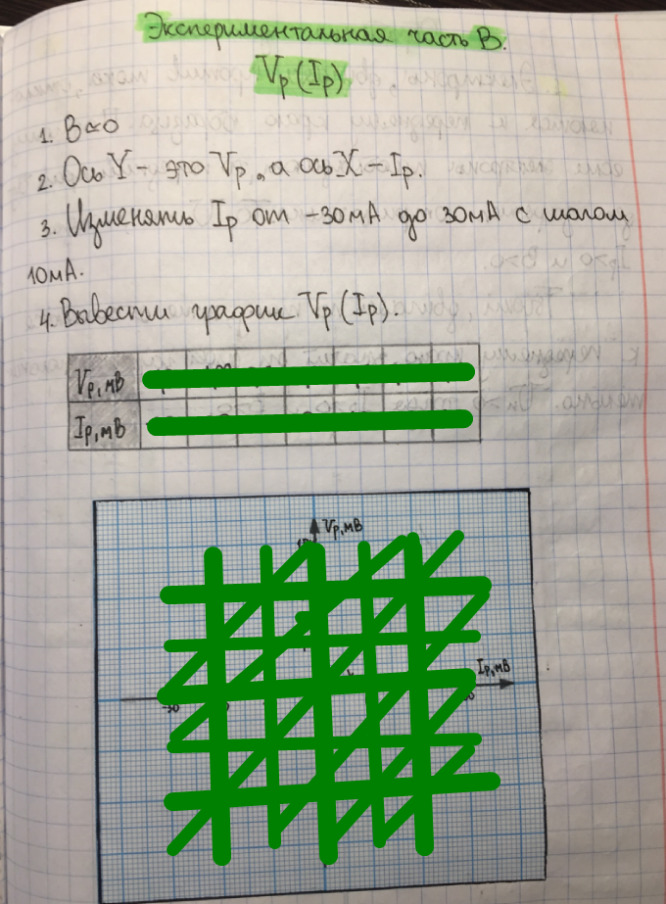 Экспериментальная часть B.
Vp (Ip)
1. B≃0
2. Ось Y - это Vp, а ось X - Ip.
3. Изменять Ip от -30мА до 30мА с шагом
10мА.
4. Вывести график Vp (Ip).
Vp, мВ
Ip, мВ
Vp, мВ
Ip, мВ